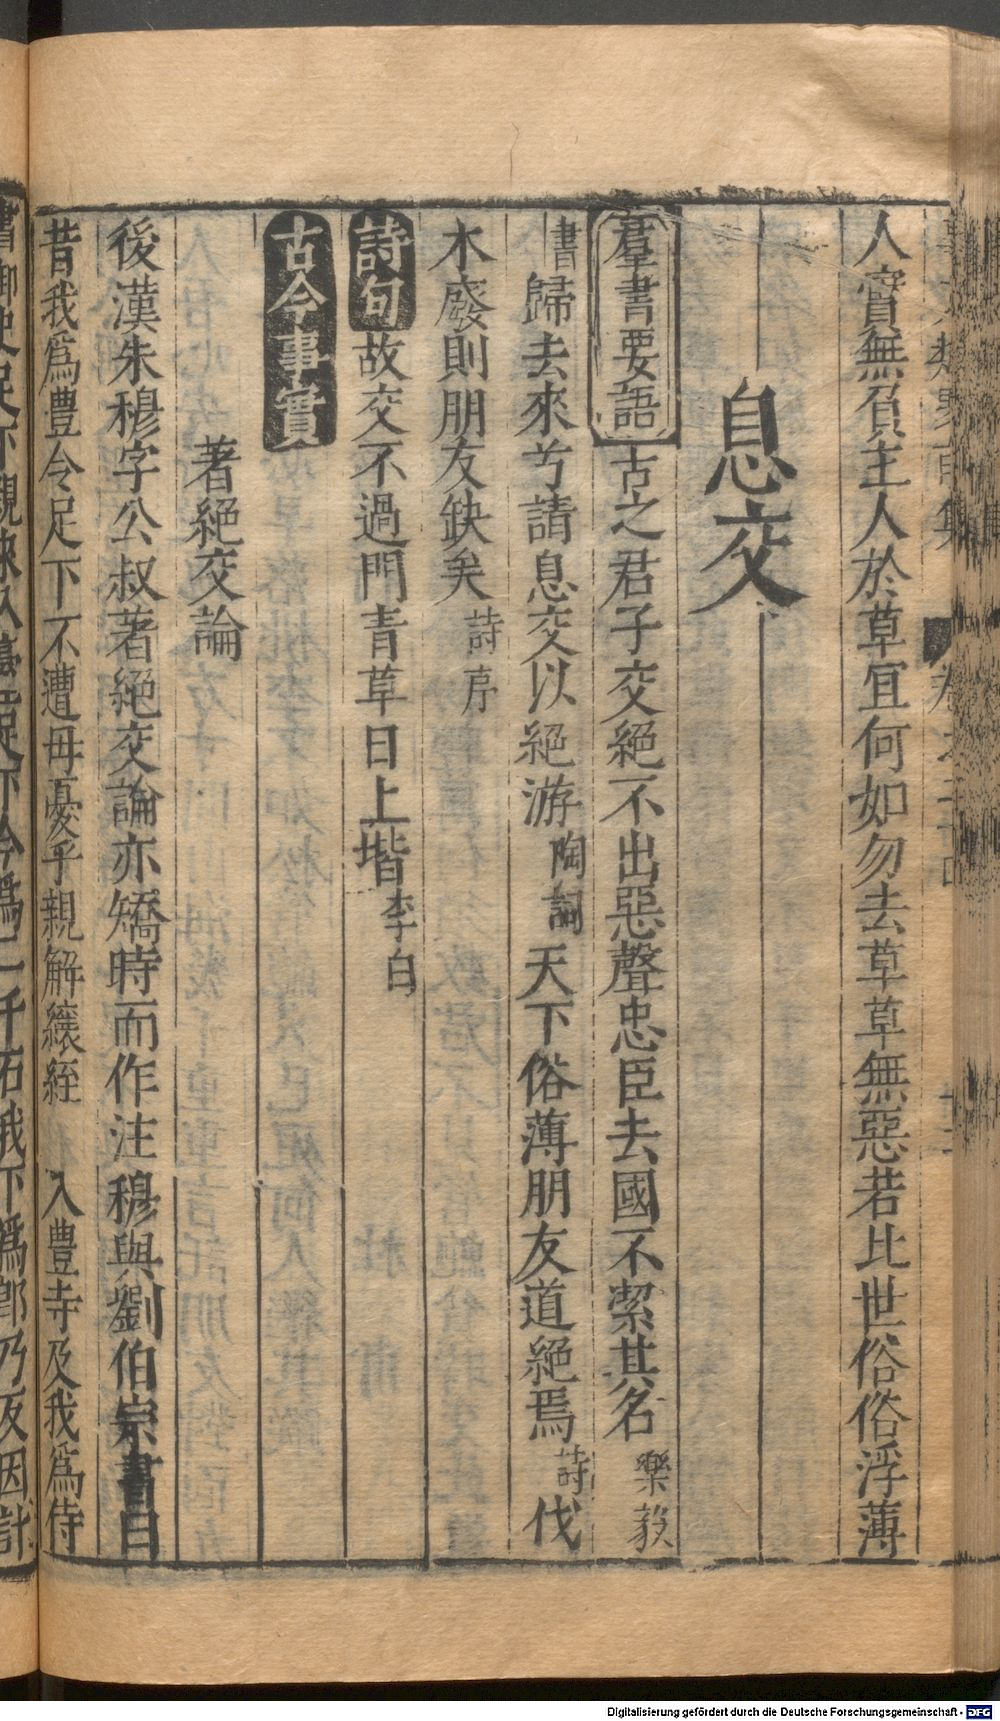 人實無負主人於草宜何如勿去草草無惡若比世俗俗浮薄
息交
羣書要語 古之君子交絕不出惡聲忠臣去國不潔其名 樂毅
書 歸去來兮請息交以絕游 陶詞 天下俗薄朋友道絕焉 詩 伐
木廢則朋友缺矣 詩序
詩句 故交不過門青草日上堦 李白
古今事實
著絕交論
後漢朱穆字公叔著絕交論亦矯時而作注穆與劉伯宗書曰
昔我爲豊令足下不遭母憂乎親解縗絰 入豊寺及我爲侍
爲二千石我下爲郎乃反因計
Digitalisierung gefördert durch die Deutsche Forschungsgemeinschaft - DFG